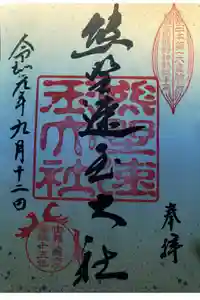 奉拝
熊野速玉大社
熊野速玉大社
令和元年九月十二日